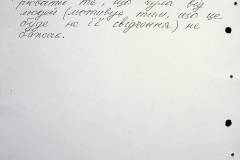 рювати те, що чула від
людей (мотивує тим, що це
буде не її свідчення) не
бажає.